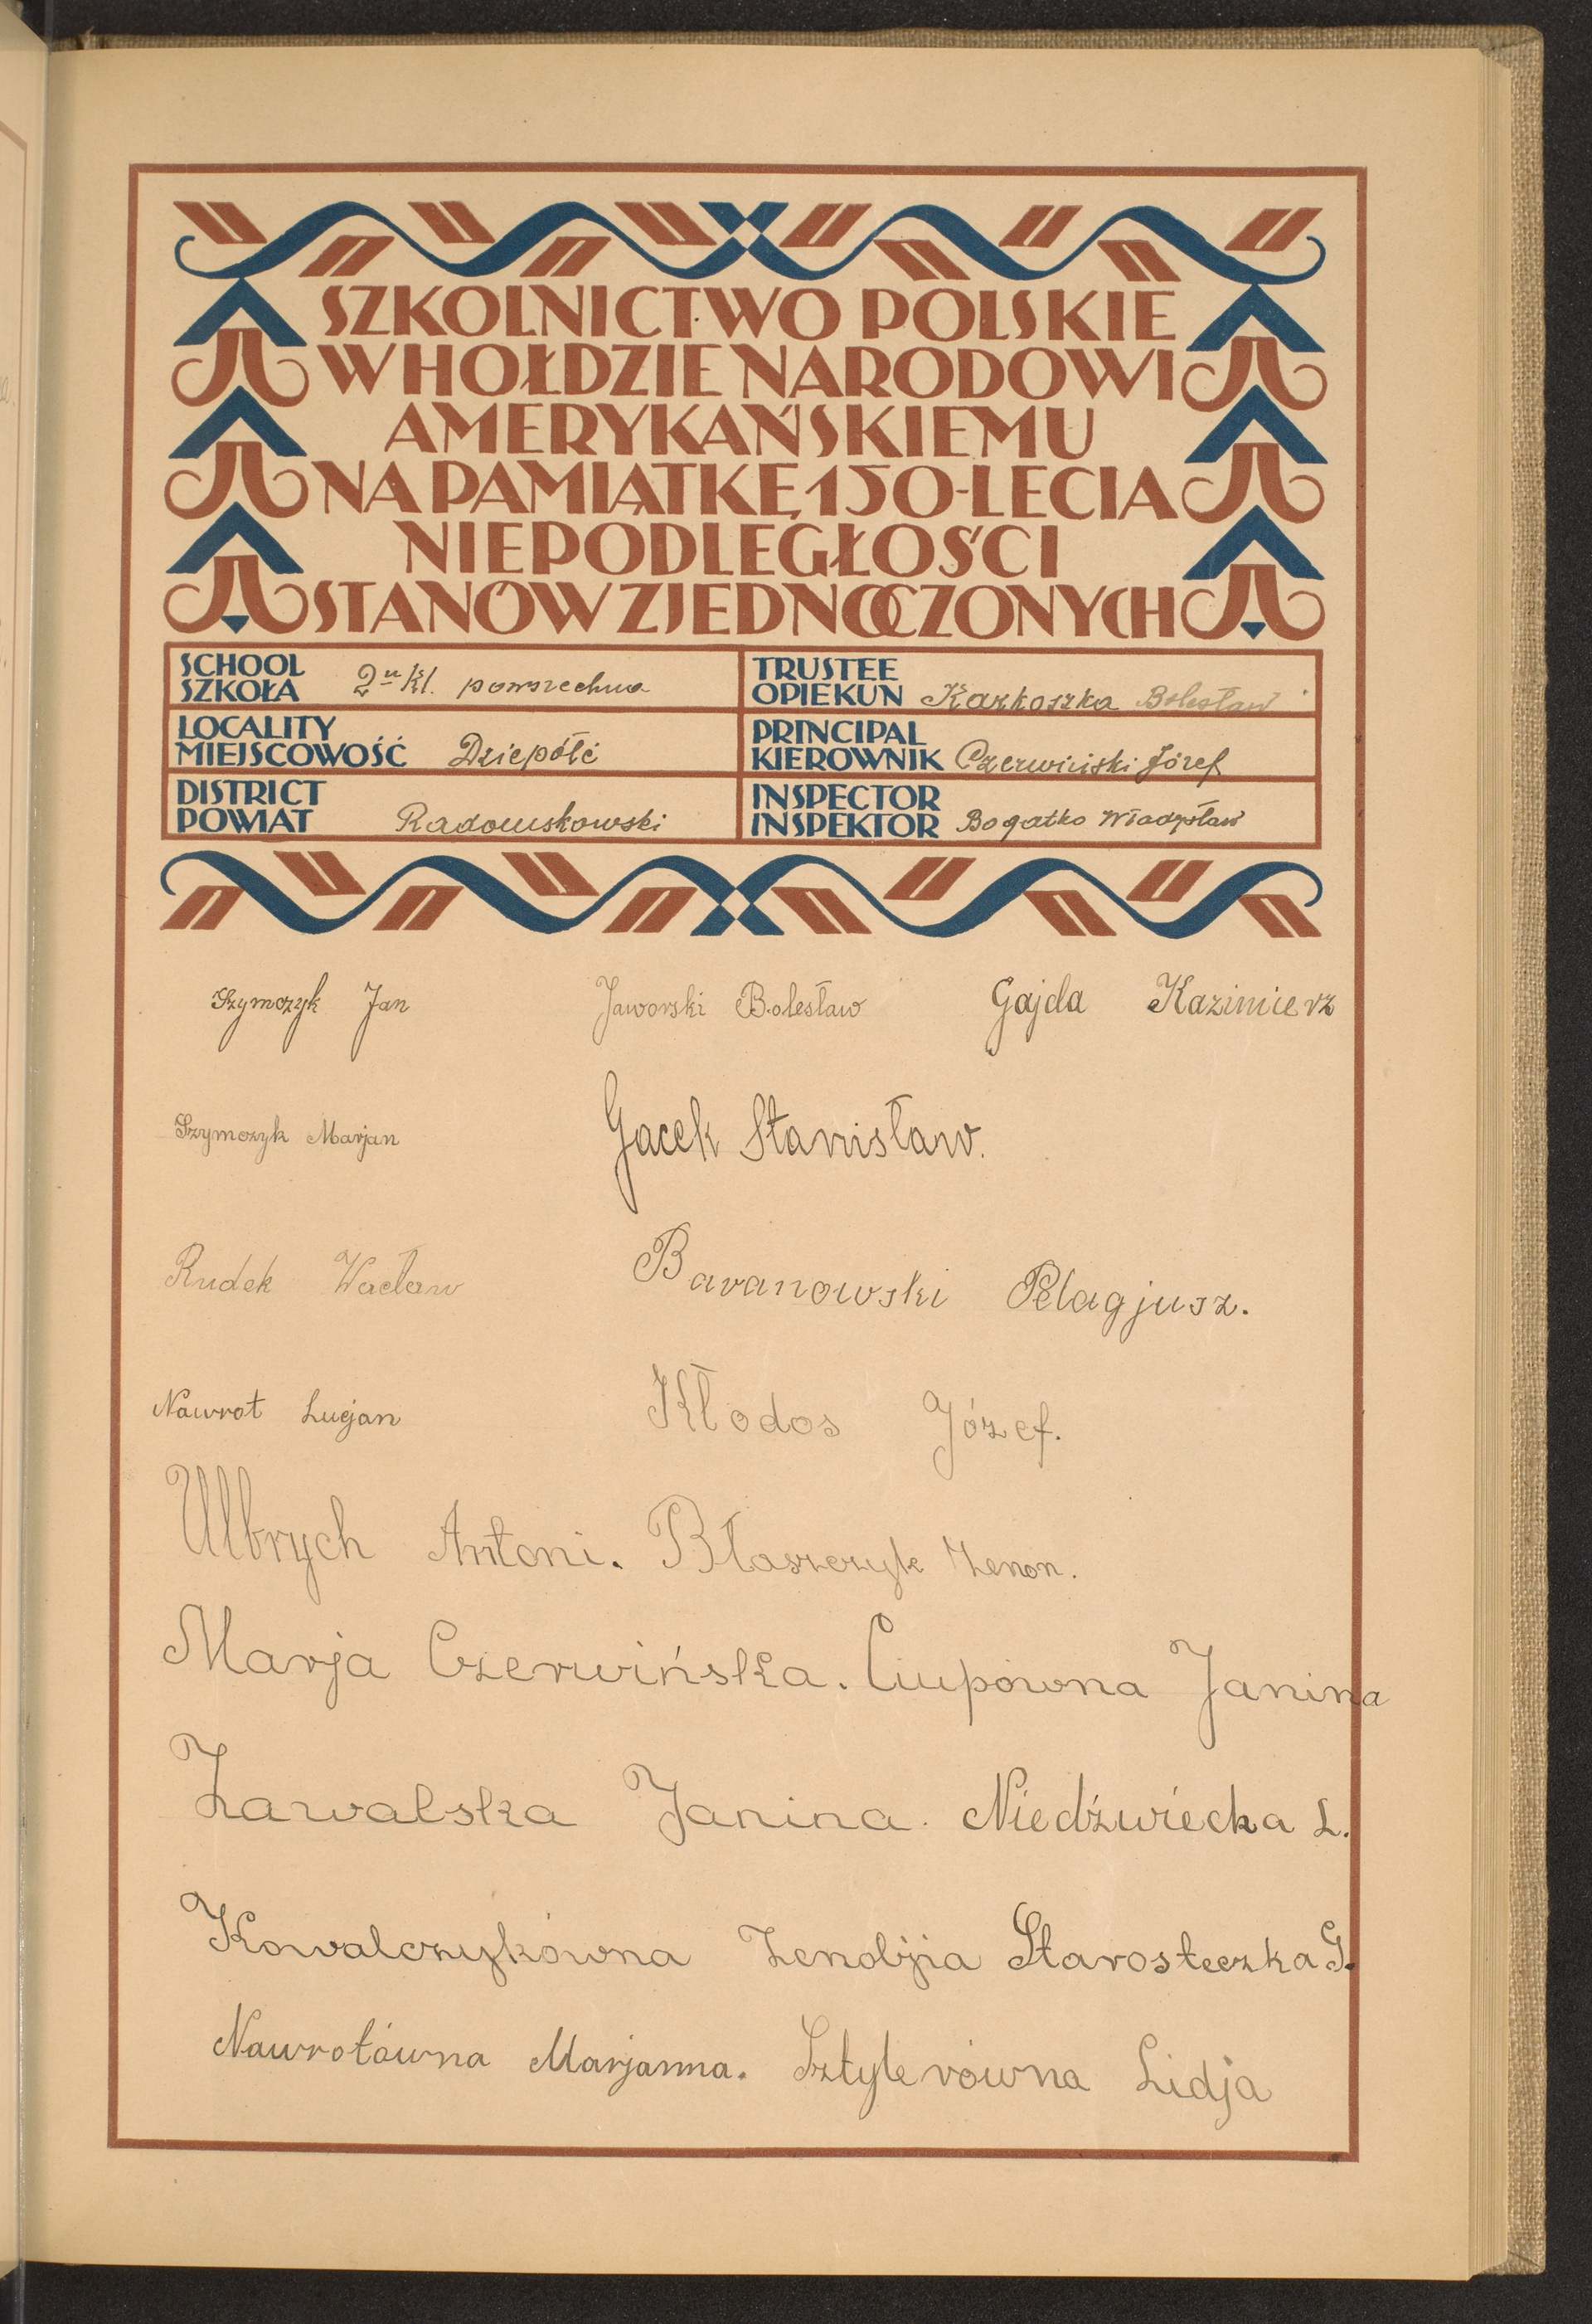 SZKOLNICTWO POLSKIE
W HOŁDZIE NARODOWI
AMERYKAŃSKIEMU
NA PAMIĄTKĘ 150-LECIA
NIEPODLEGŁOŚCI
STANÓW ZJEDNOCZONYCH
SCHOOL
SZKOŁA 2 u kl. powszechna
TRUSTEE
OPIEKUN Karkoszka Bolesław
LOCALITY
MIEJSCOWOŚĆ Dziepółć
PRINCIPAL
KIEROWNIK Czerwiński Józef
DISTRICT
POWIAT Radomskowski
INSPECTOR
INSPEKTOR Bogatko Władysław
Szymczyk Jan Jaworski Bolesław Gajda Kazimierz
Szymczyk Marjan Gacek Stanisław.
Rudek Wacław Baranowski Pelagjusz.
Nawrot Lucjan Kłodos Józef.
Ulbrych Antoni. Błaszczyk Zenon.
Marja Czerwińska. Ciupówna Janina
Zawalska Janina. Niedźwiecka L.
Kowalczykówna Zenobja Starosteczka G.
Nawrotówna Marjanna. Sztylerówna Lidja